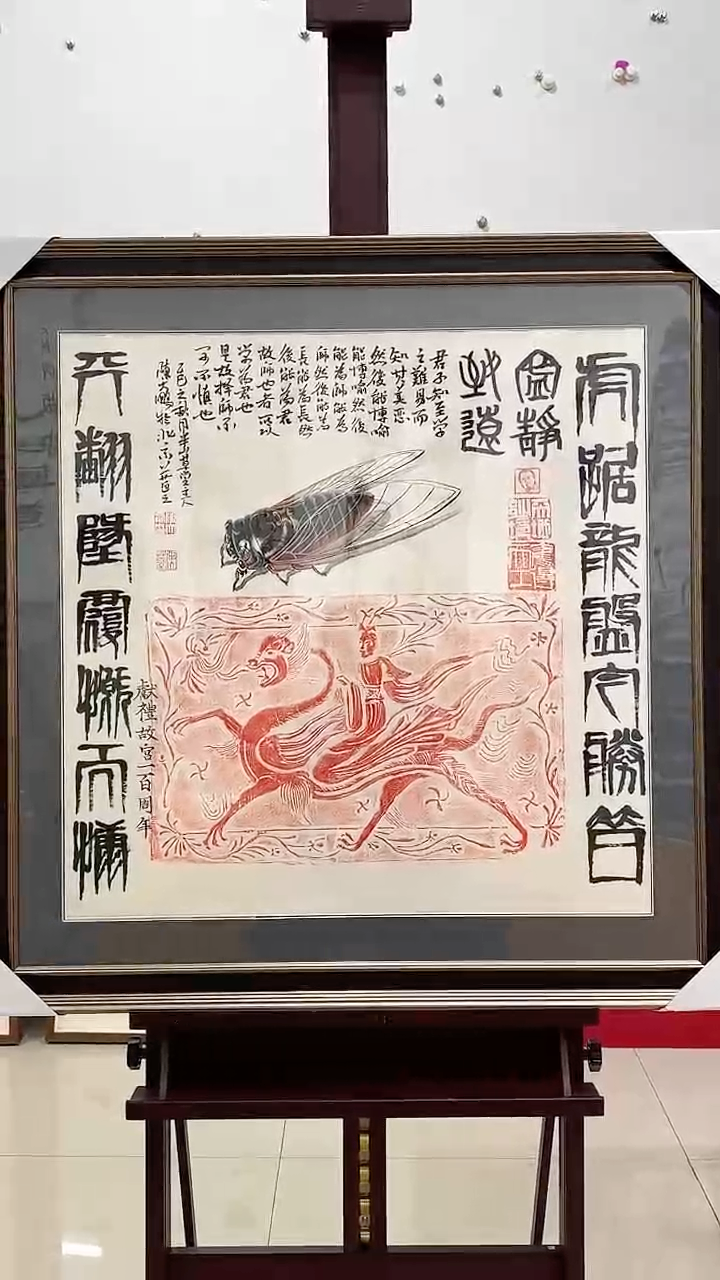 虎踞龍盤今勝昔
寧靜
致遠
君子知至學
之難易而
知其美惡
然後能博喻
能博喻然後
能為師能為
師然後能為
長能為長然
後能為君
故師也者所以
學為君也
是故擇師不
可不慎也
乙巳之秋月半山草堂主人
陳大鵬於北京
獻禮故宮一百周年
天翻地覆慨而慷